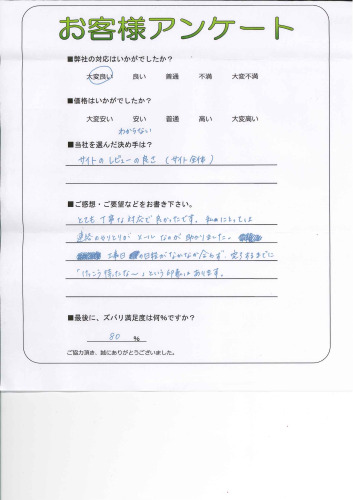 お客様アンケート
■弊社の対応はいかがでしたか？
大変良い 良い 普通 不満 大変不満
■価格はいかがでしたか？
大変安い 安い 普通 高い 大変高い
わからない
■当社を選んだ決め手は？
サイトのレビューの良さ（サイト全体）
■ご感想・ご要望などをお書き下さい。
とても丁寧な対応で良かったです。私にとっては
連絡のやりとりがメールなのが助かりました。
工事日の日程がなかなか合わず、完了するまでに
「けっこう待ったな〜」という印象はあります。
■最後に、ズバリ満足度は何％ですか？
80 %
ご協力頂き、誠にありがとうございました。